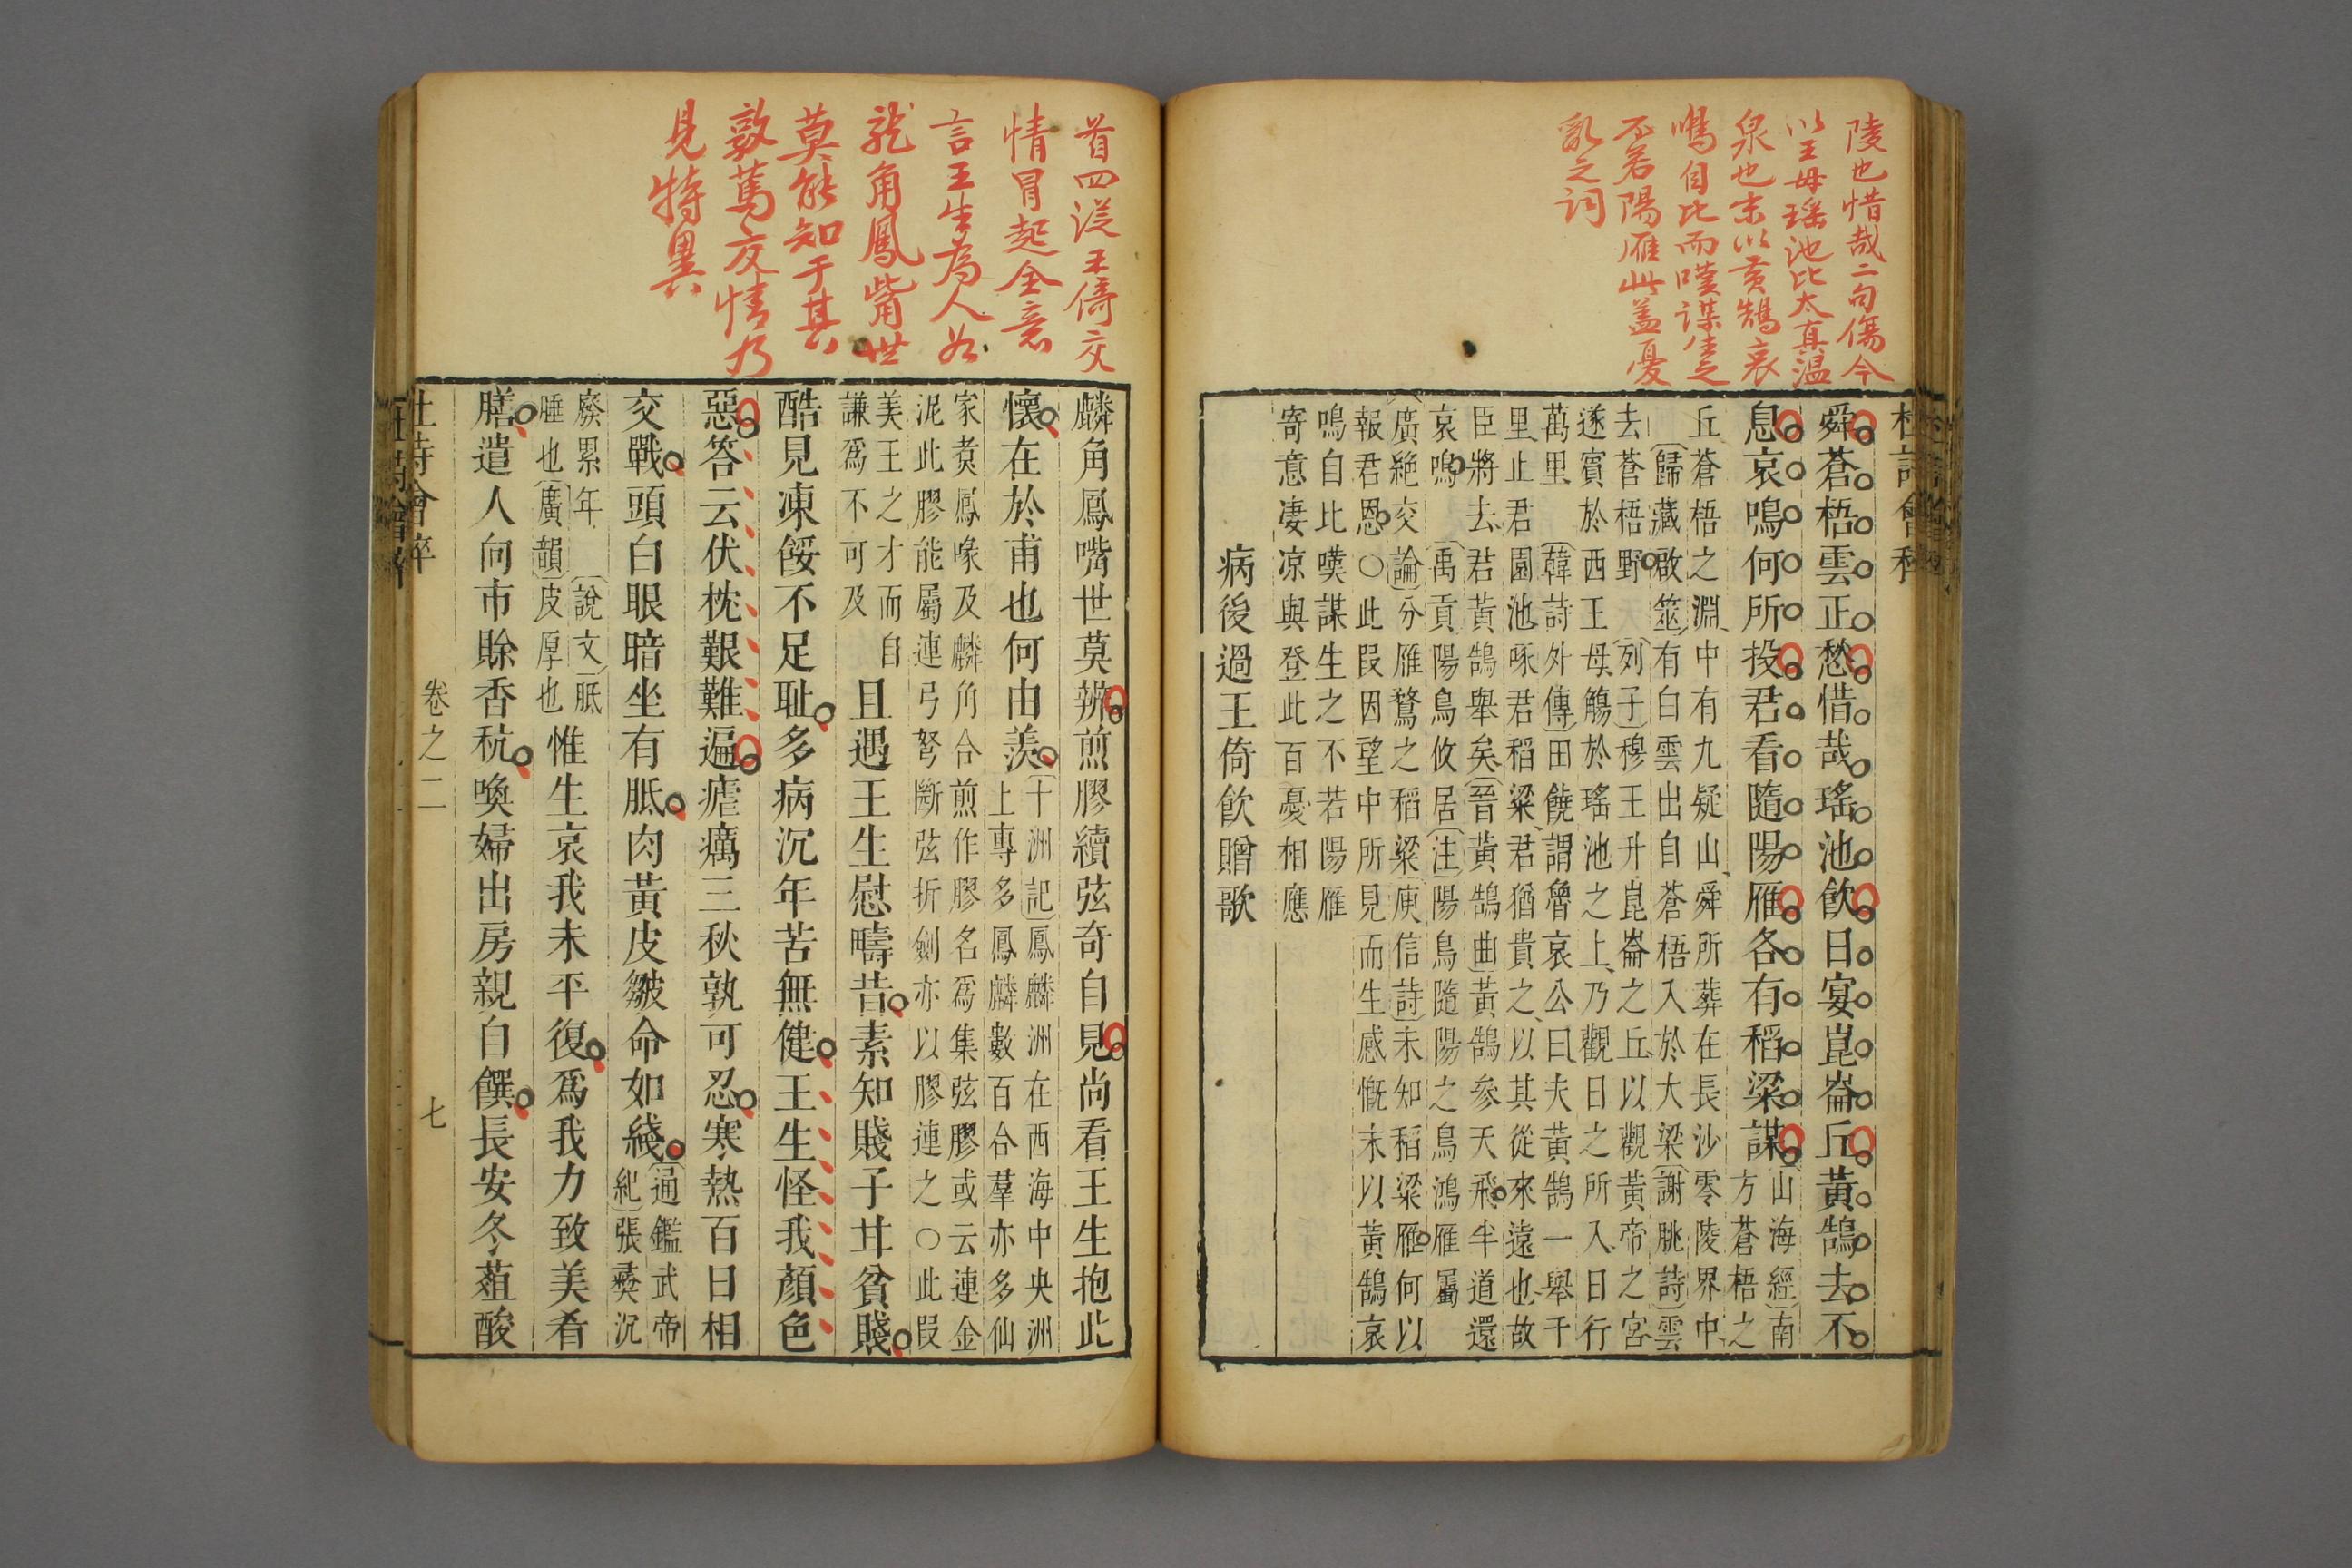 陵也惜哉二句傷今
以王母瑶池比太真温
泉也末以黄鵠哀
鳴自比而嘆謀生之
不若陽雁此蓋憂
亂之詞
舜蒼梧雲正愁惜哉瑤池飲日宴崑崙丘黃鵠去不
息哀鳴何所投君看隨陽雁各有稻粱謀
山海經南
方蒼梧之
丘蒼梧之淵中有九疑山舜所葬在長沙零陵界中
歸藏啟筮有白雲出自蒼梧入於大梁謝朓詩雲
去蒼梧野列子穆王升崑崙之丘以觀黃帝之宮
遂賓於西王母觴於瑤池之上乃觀日之所入日行
萬里韓詩外傳田饒謂魯哀公曰夫黃鵠一舉千
里止君園池啄君稻粱君猶貴之以其從來遠也故
臣將去君黃鵠舉矣晉黃鵠曲黃鵠參天飛半道還
哀鳴禹貢陽鳥攸居注陽鳥隨陽之鳥鴻雁屬
廣絶交論分雁鶩之稻粱庾信詩未知稻粱雁何以
報君恩○此段因望中所見而生感慨末以黃鵠哀
鳴自比嘆謀生之不若陽雁
寄意凄凉與登此百憂相應
病後過王倚飲贈歌
首四從王倚交
情冒起全意
言王生為人如
龍角鳳觜世
莫能知于其
敦篤交情乃
見特異
麟角鳳嘴世莫辨煎膠續弦奇自見尚看王生抱此
懷在於甫也何由羨
十洲記鳳麟洲在西海中央洲
上專多鳳麟數百合羣亦多仙
家煑鳳喙及麟角合煎作膠名爲集弦膠或云連金
泥此膠能屬連弓弩斷弦折劍亦以膠連之○此段
美王之才而自
謙爲不可及
且遇王生慰疇昔素知賤子甘貧賤
酷見凍餒不足耻多病沉年苦無健王生怪我顏色
惡答云伏枕艱難遍瘧癘三秋孰可忍寒熱百日相
交戰頭白眼暗坐有胝肉黃皮皺命如綫
通鑑武帝
紀張彝沉
廢累年說文胝
腄也廣韻皮厚也
惟生哀我未平復爲我力致美肴
膳遣人向市賒香秔喚婦出房親自饌長安冬葅酸
杜詩會稡
卷之二
七